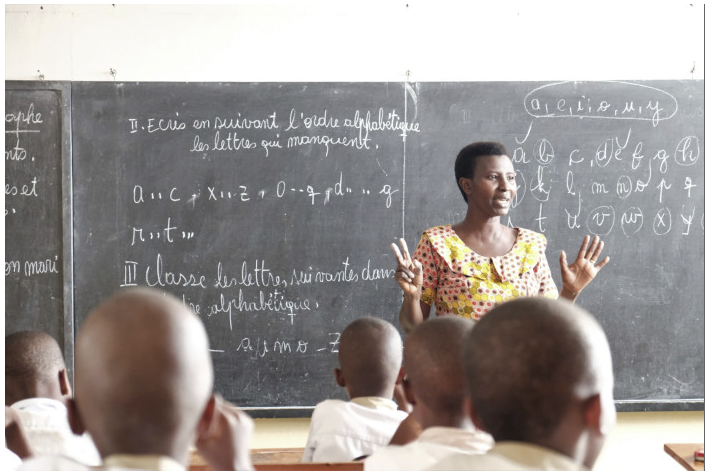 aphe
nts.
es et
en mari
II. Ecris en suivant l'ordre alphabétique
les lettres qui manquent.
a .. c , x .. z , o -- q , d .. .. g
r .. t ...
III Classe les lettres suivantes dans
alphabétique.
a j m o - z
a, e, i, o, u, y
a b c d e f g h
k l m n o p q
t u v w x y